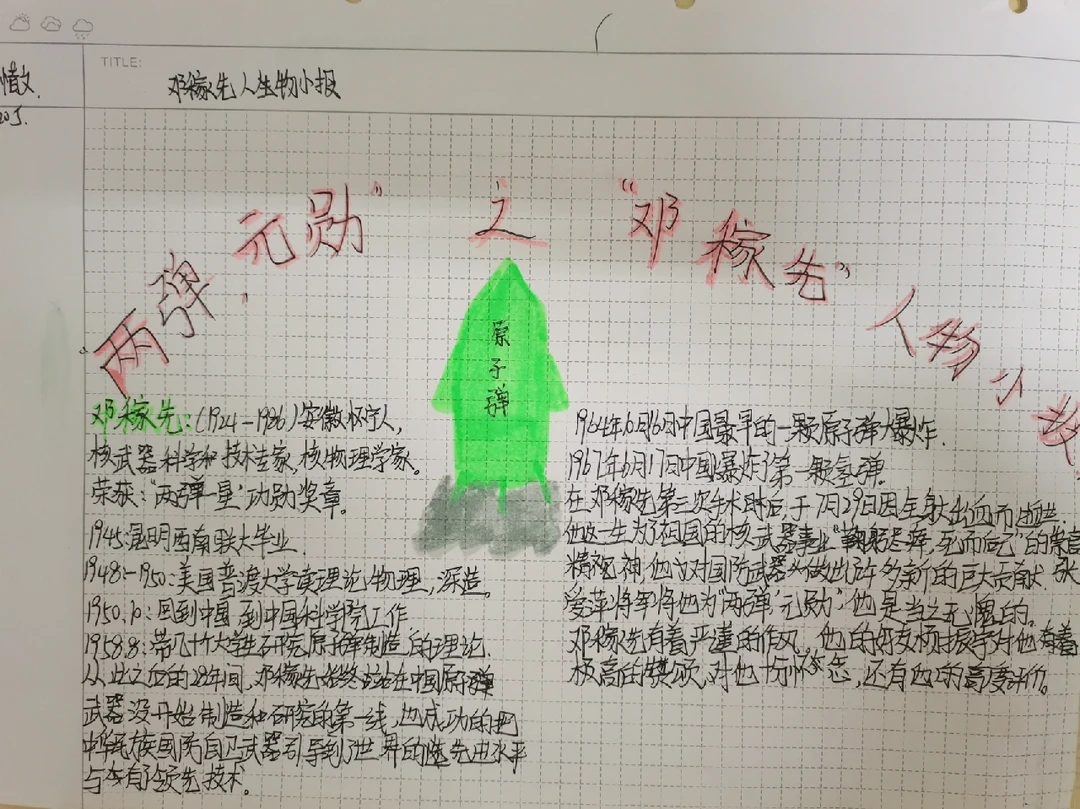 TITLE:
邓稼先人生物小报
"两弹.元勋"之"邓稼先"人物小报
原子弹
邓稼先:(1924-1986)安徽怀宁人,
核武器科学和技术专家,核物理学家。
荣获:"两弹一星"功勋奖章。
1945:昆明西南联大毕业
1948:-1950:美国普渡大学读理论物理,深造。
1950.10:回到中国,到中国科学院工作
1958.8:带几十个大学生研究原子弹制造的理论.
从此之后的28年间,邓稼先始终站在中国原子弹
武器没开始制造和研究的第一线,也成功的把
中华民族国防自卫武器引导到了世界的先水平
与有了领先技术.
1964年10月16日中国最早的一颗原子弹大爆炸.
1967年6月17日中国爆炸了第一颗氢弹.
在邓稼先第三次手术时后,于7月29日因全身出血而逝世
他这一生为了祖国的核武器事业"鞠躬尽瘁,死而后已"的崇高
精神,他对国防武器做出许多新的巨大贡献.张
爱萍将军将他为"两弹'元勋'他是当之无愧的。
邓稼先有着严谨的作风,他的好友杨振宁对他有着
极高的赞颂,对他十分怀念,还有他的高度评价。